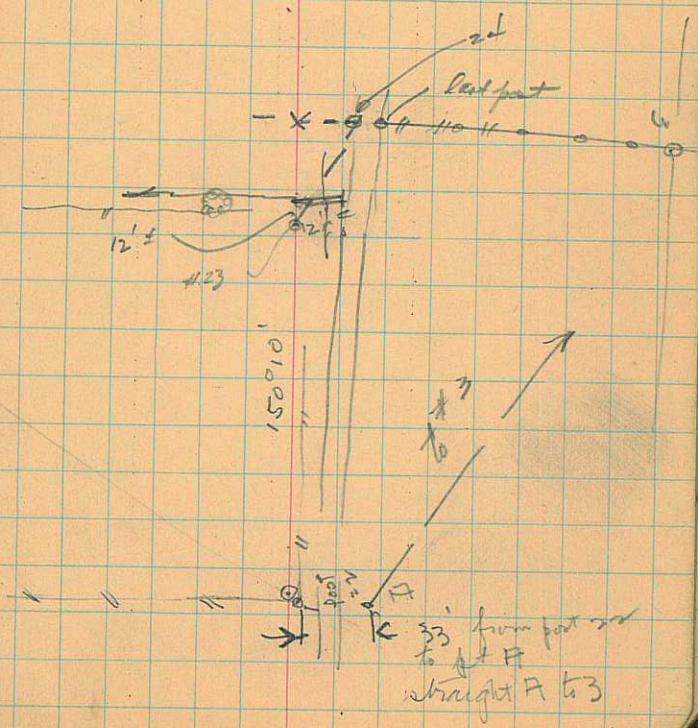 last post
12'±
12'
4.23
150°10'
to #3
A
33' from post
to pt A
straight A to 3